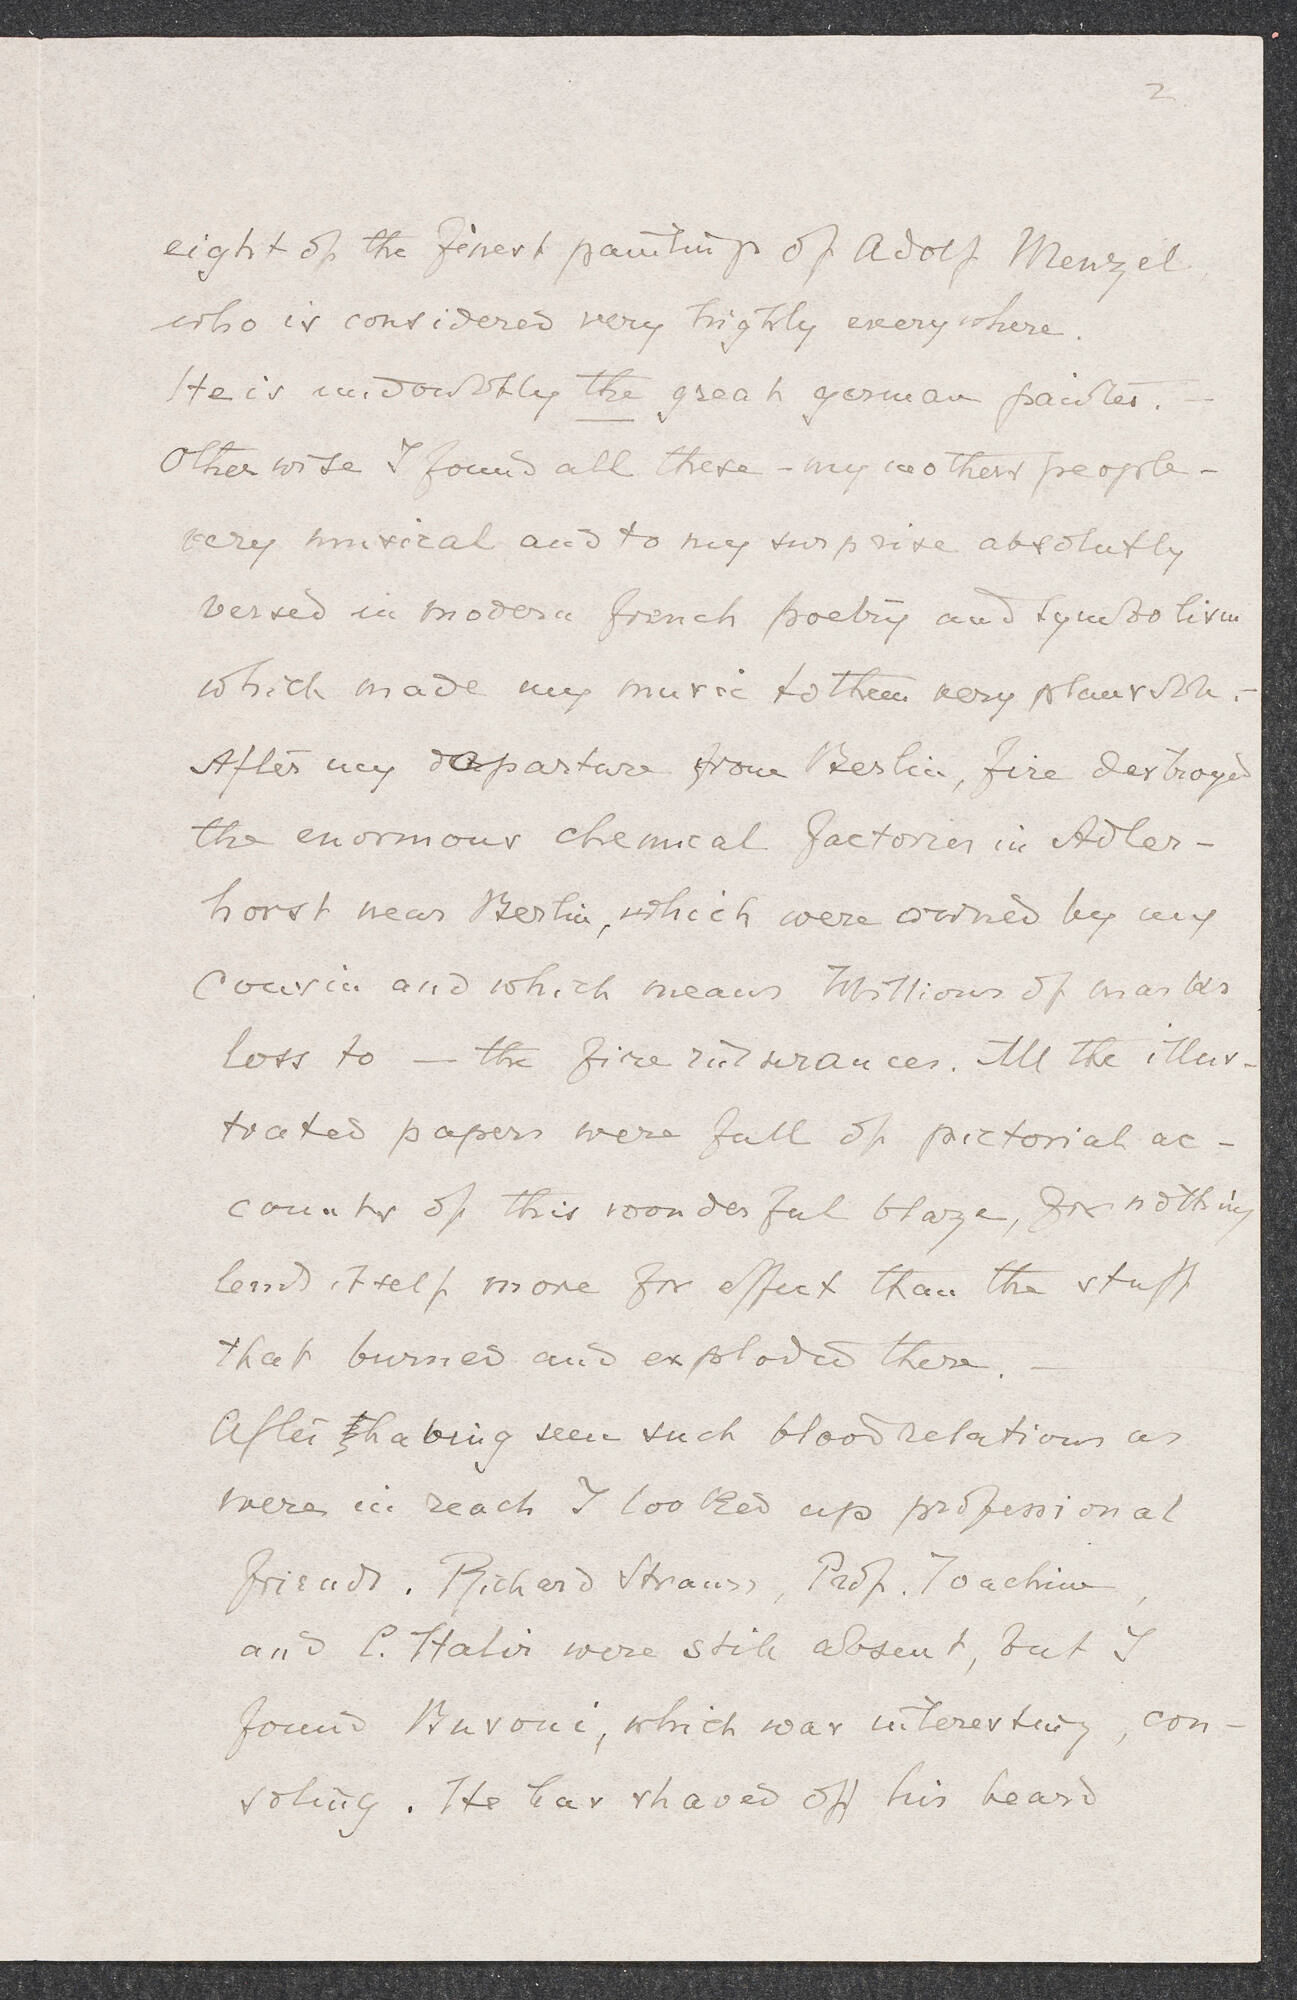 2
eight of the finest paintings of Adolf Menzel
who is considered very highly everywhere.
He is undoubtly the great german painter. —
Otherwise I found all these - my mothers people -
very musical and to my surprise absolutly
versed in modern french poetry and symbolism
which made my music to them very plausible. -
After my departure from Berlin, fire destroyed
the enormous chemical factories in Adler-
horst near Berlin, which were owned by my
Cousin and which means Millions of marks
loss to — the fire insurances. All the illus-
trated papers were full of pictorial ac-
counts of this wonderful blaze, for nothing
lends itself more for effect than the stuff
that burned and exploded there. —
After having seen such bloodrelations as
were in reach I looked up professional
friends. Richard Strauss, Prof. Joachim,
and C. Halir were still absent, but I
found Busoni, which was interesting, con-
soling. He has shaved off his beard